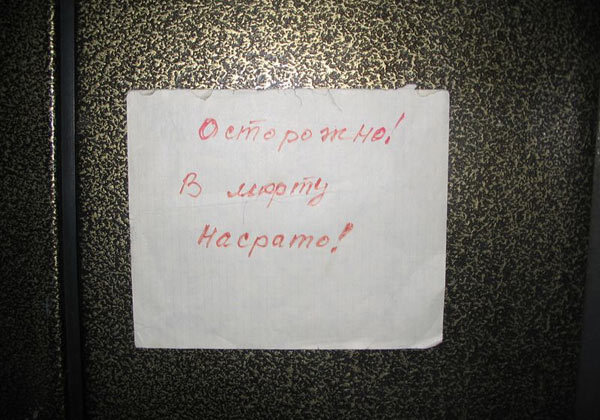 Осторожно!
В лифту
Насрато!